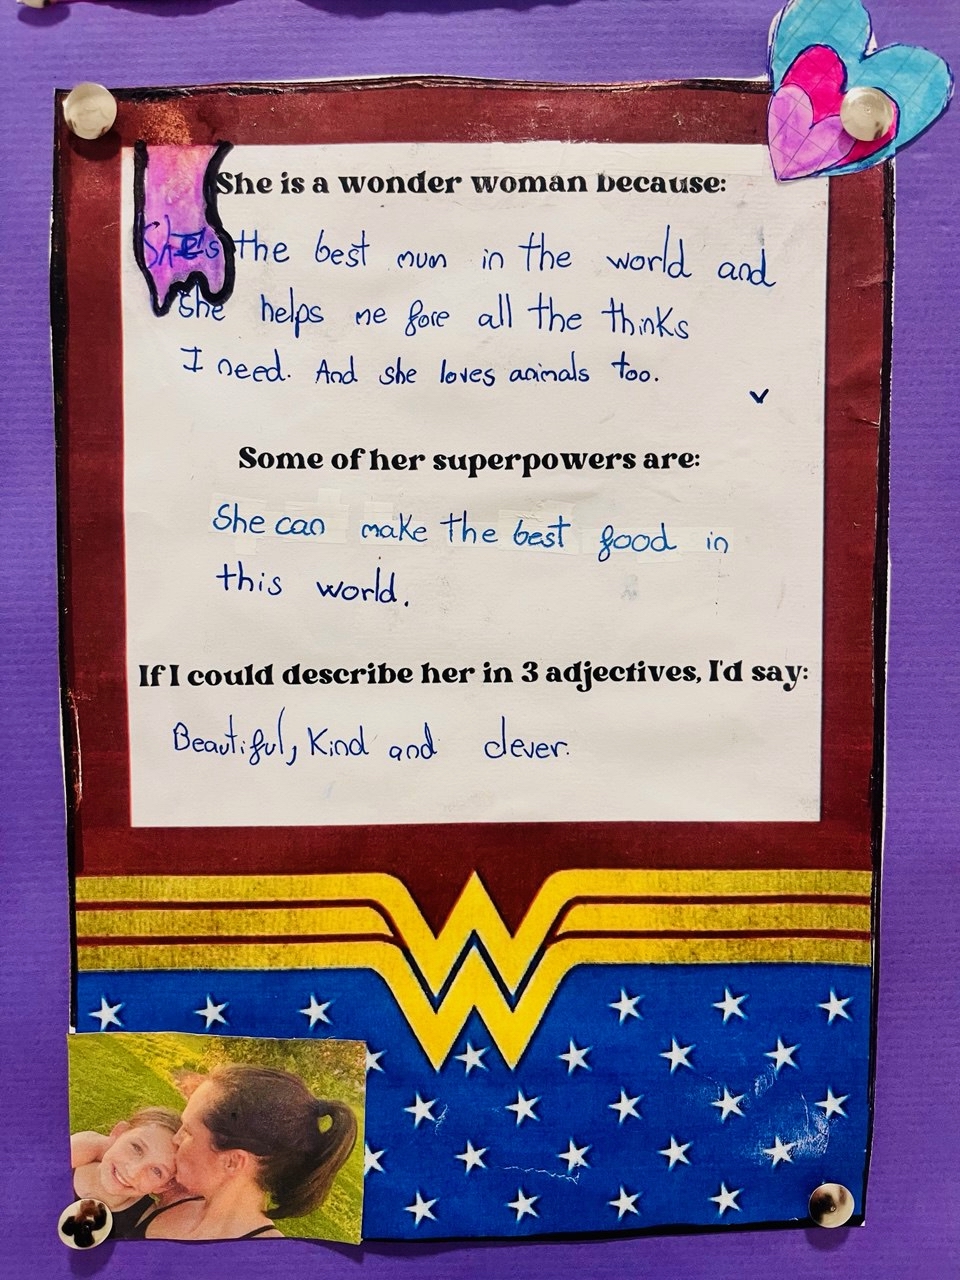 She is a wonder woman because:
She's the best mum in the world and
she helps me fore all the thinks
I need. And she loves animals too.
Some of her superpowers are:
She can make the best food in
this world.
If I could describe her in 3 adjectives, I'd say:
Beautiful, Kind and clever.